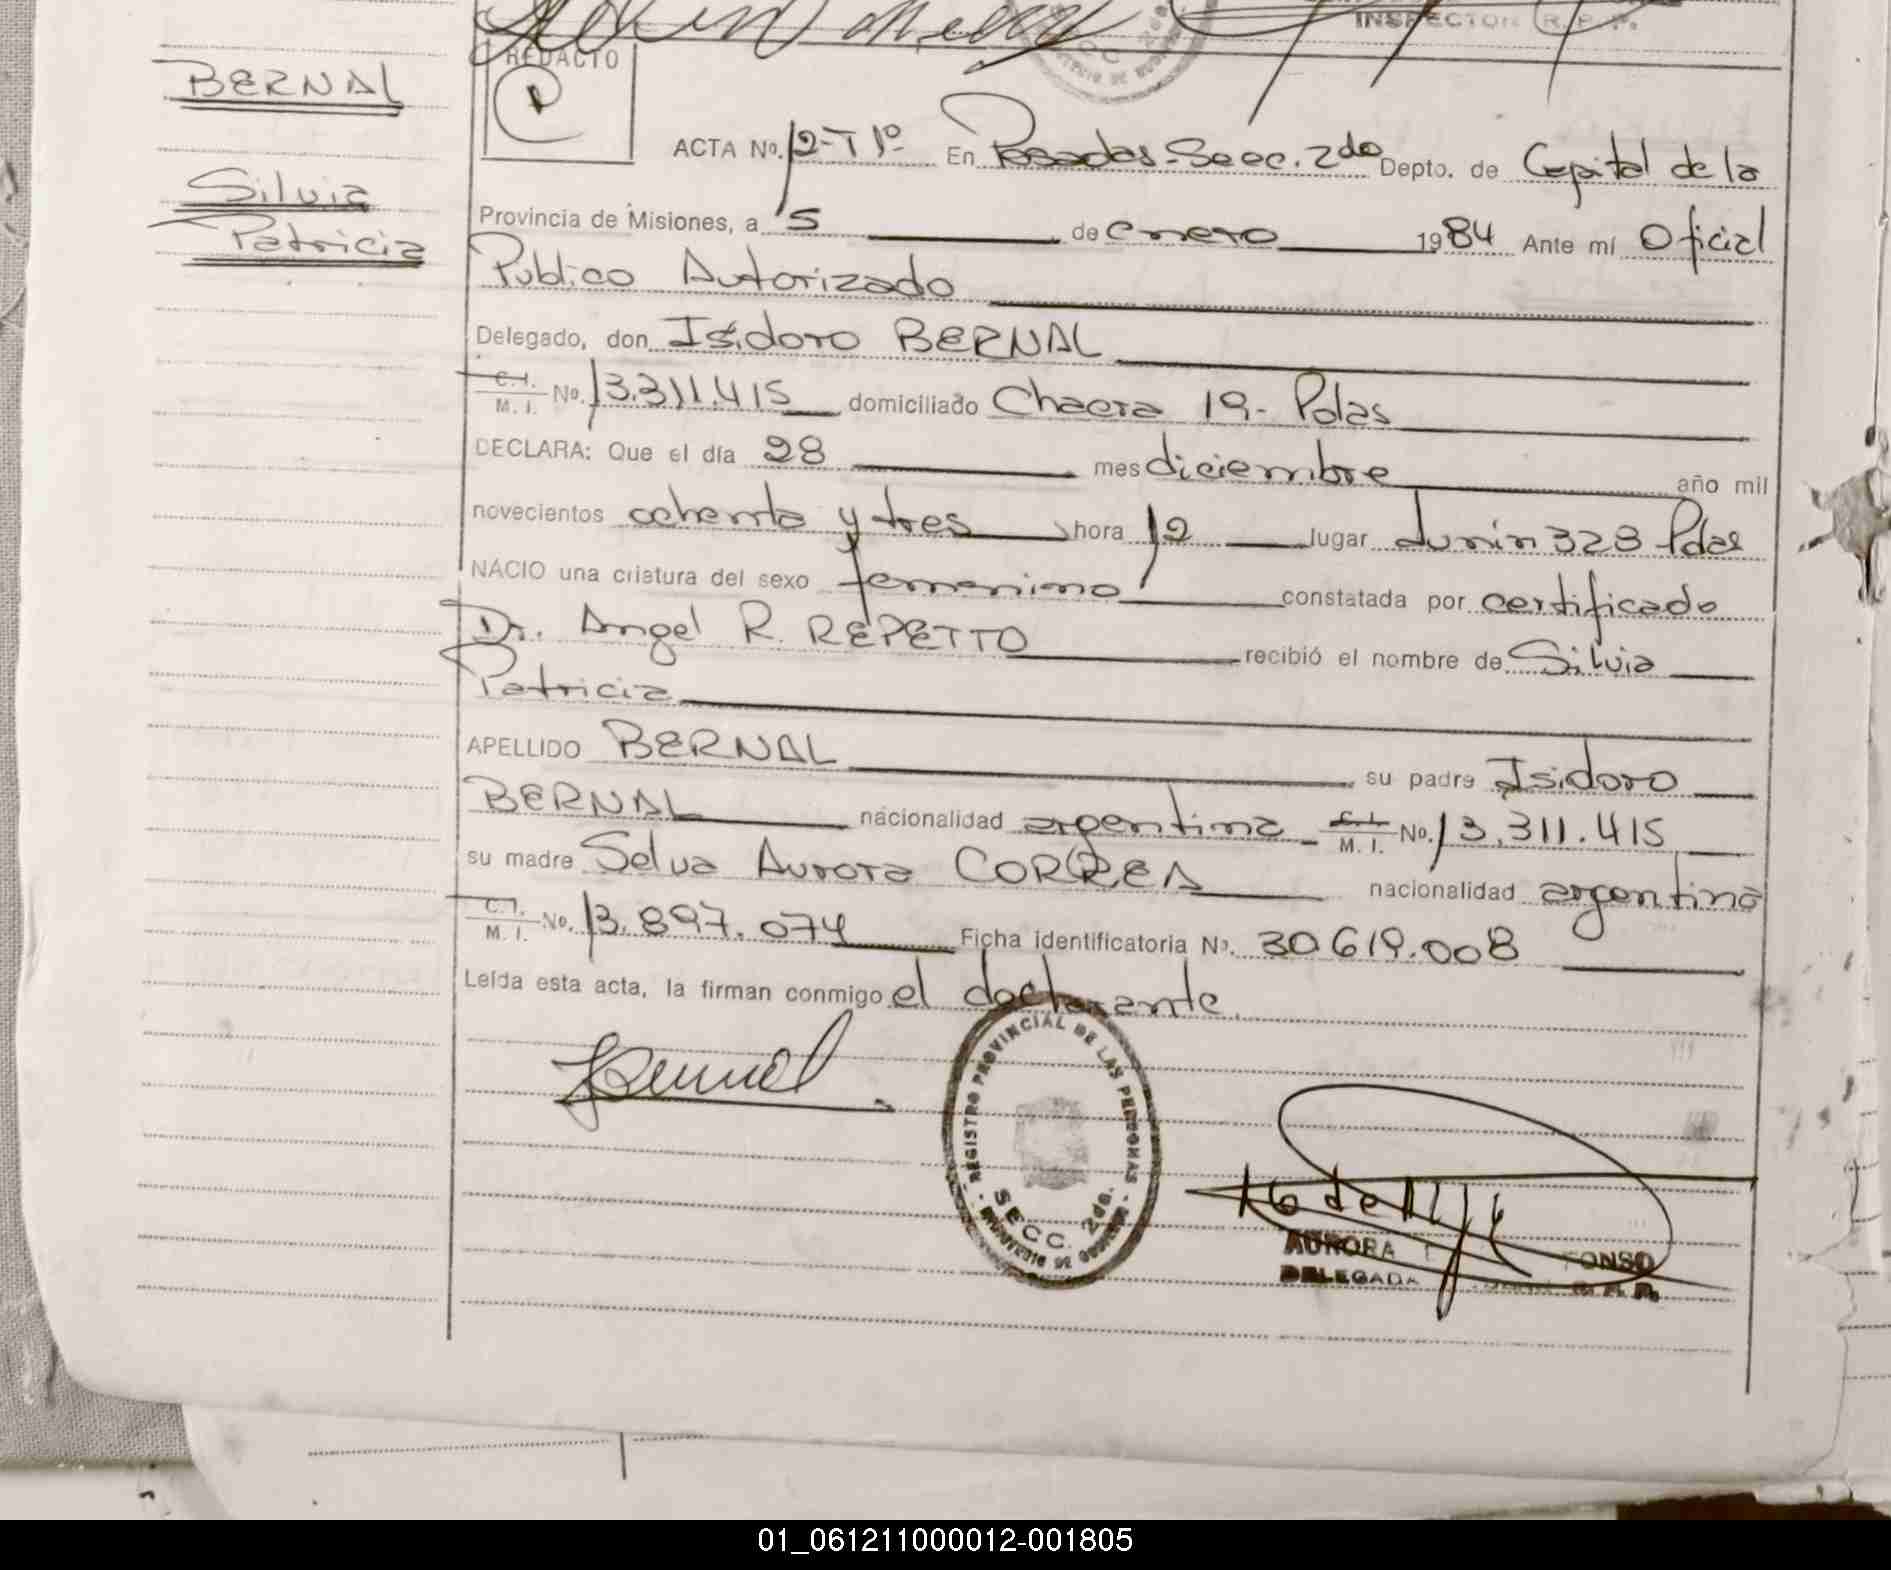 INSPECTOR R. P. P.
REDACTO
BERNAL
Silvia
Patricia
ACTA No. 12-T 1º En Posadas-Secc. 2do Depto. de Capital de la
Provincia de Misiones, a 5 de enero 1984 Ante mí Oficial
Publico Autorizado
Delegado, don Isidoro BERNAL
C.I. M. I. No. 13.311.415 domiciliado Chacra 19.- Pdas
DECLARA: Que el día 28 mes diciembre año mil
novecientos ochenta y tres hora 12 lugar Junin 328 Pdas
NACIO una criatura del sexo femenino constatada por certificado
Dr. Angel R. REPETTO recibió el nombre de Silvia
Patricia
APELLIDO BERNAL su padre Isidoro
BERNAL nacionalidad argentina C.I. M. I. No. 13.311.415
su madre Selva Aurora CORREA nacionalidad argentina
C.I. M. I. No. 13.897.074 Ficha identificatoria Nº. 30.619.008
Leída esta acta, la firman conmigo el declarante.
Bernal
REGISTRO PROVINCIAL DE LAS PERSONAS
SECC. 2da.
AURORA FONSO
DELEGADA
01_061211000012-001805